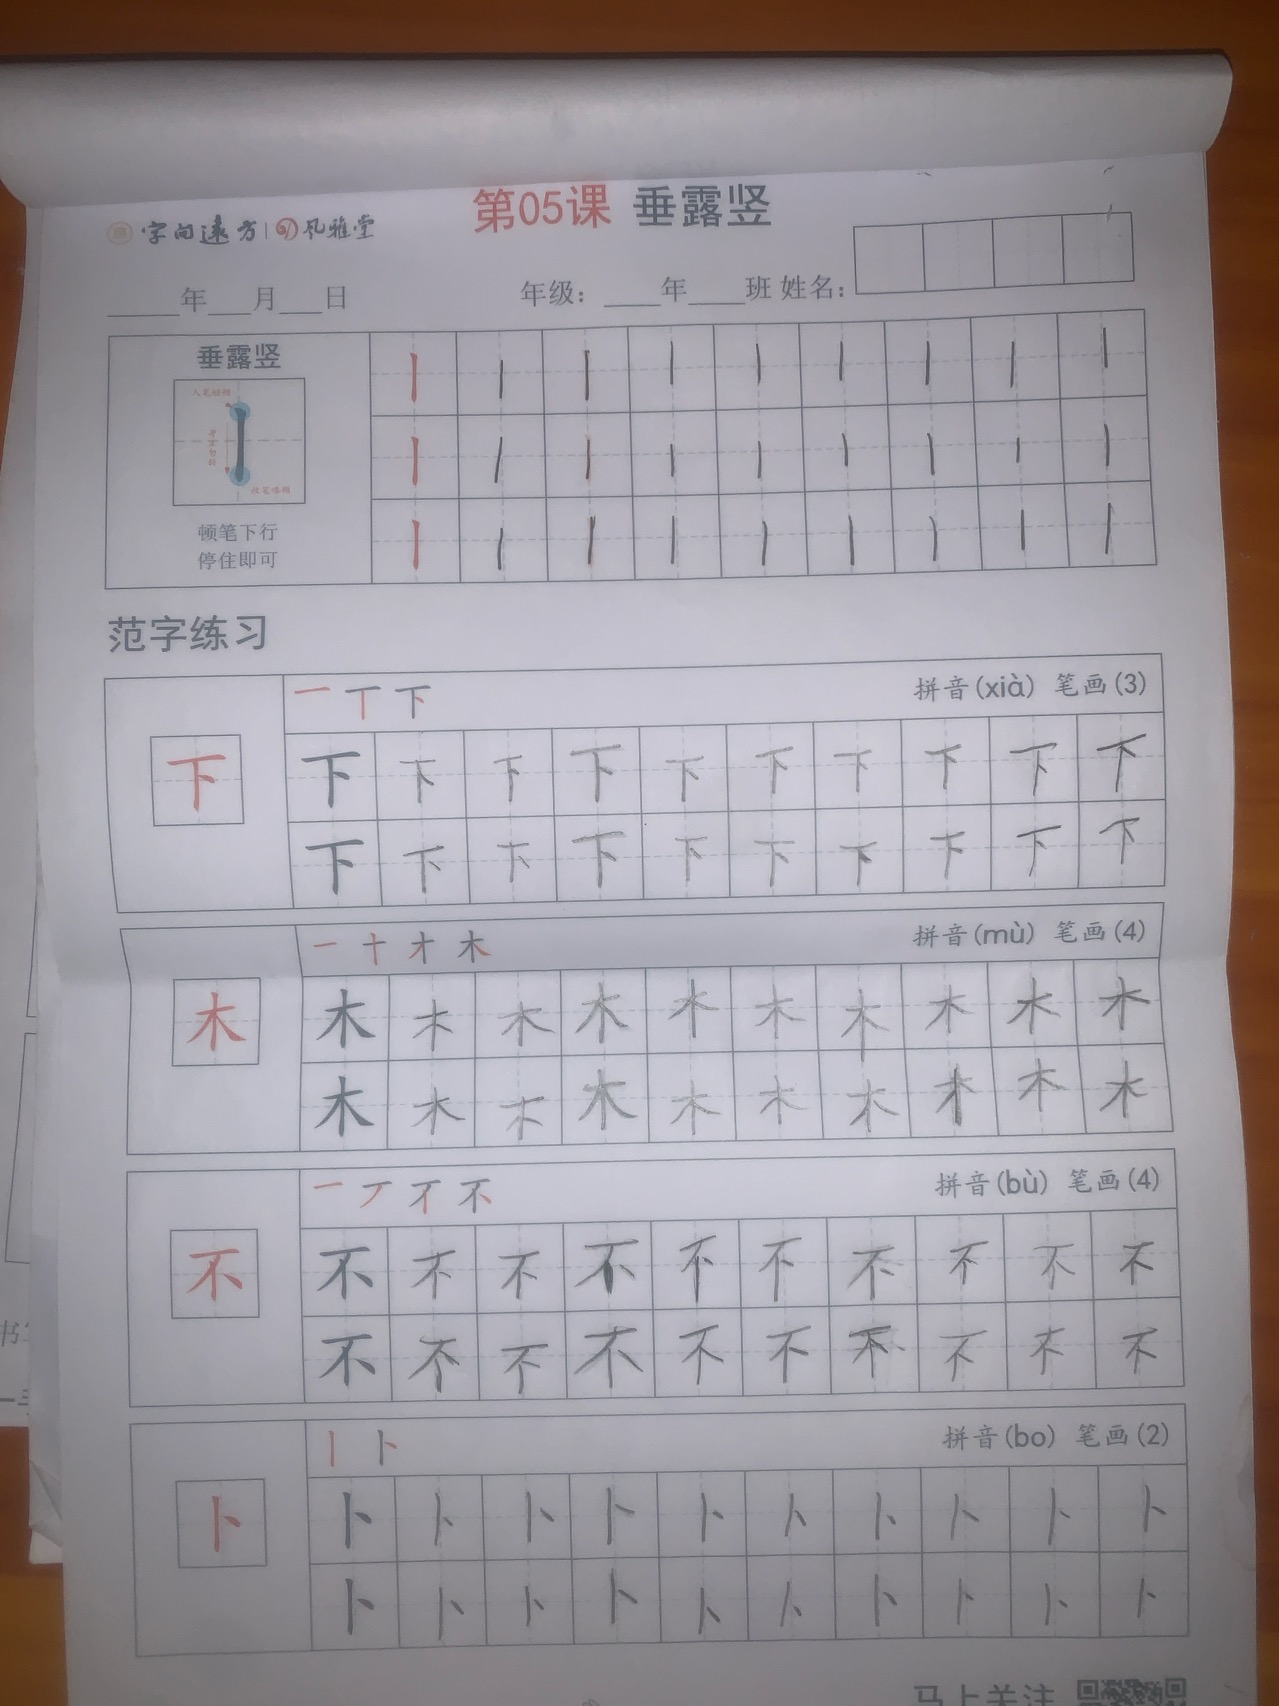 字向远方 | 风雅堂
第05课 垂露竖
年 月 日
年级: 年 班 姓名:
垂露竖
顿笔下行
停住即可
范字练习
一 丅 下
拼音(xià) 笔画(3)
下 下 下 下 下 下 下 下 下 下 下
下 下 下 下 下 下 下 下 下 下
一 十 才 木
拼音(mù) 笔画(4)
木 木 木 木 木 木 木 木 木 木 木
木 木 木 木 木 木 木 木 木 木
一 丆 不
拼音(bù) 笔画(4)
不 不 不 不 不 不 不 不 不 不 不
不 不 不 不 不 不 不 不 不 不
丨 卜
拼音(bo) 笔画(2)
卜 卜 卜 卜 卜 卜 卜 卜 卜 卜 卜
卜 卜 卜 卜 卜 卜 卜 卜 卜 卜
马上关注